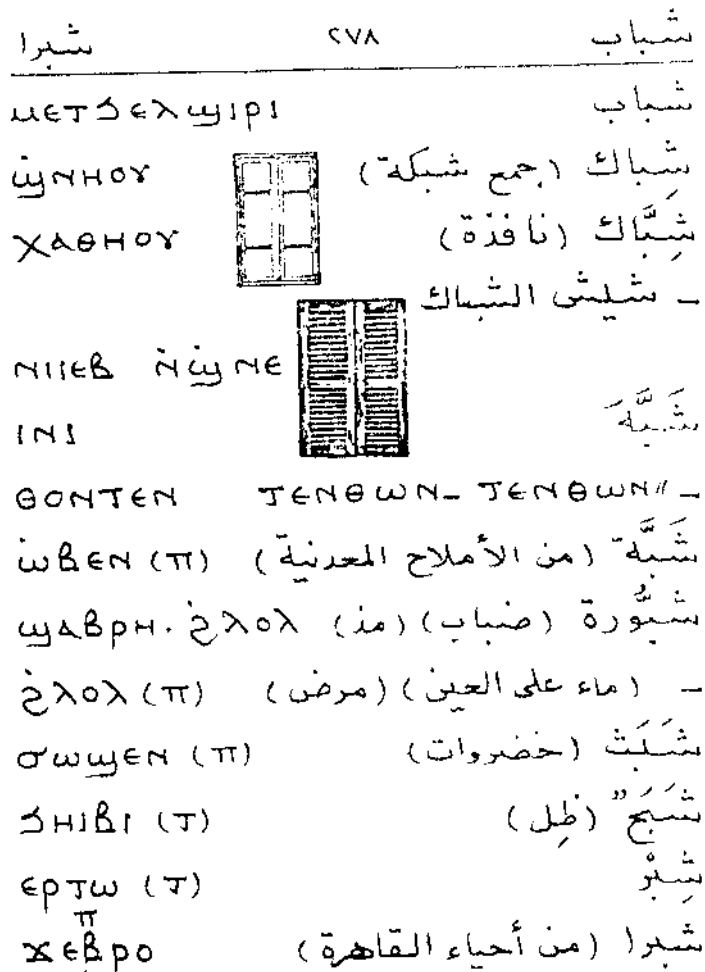 شباب ٢٧٨ شبرا
شباب ⲙⲉⲧϧⲉⲗϣⲓⲣⲓ
شِباك (جمع شبكة) ϣ̇ⲛⲏⲟⲩ
شِبَّاك (نافذة) ⲭⲁⲑⲏⲟⲩ
ـ شيش الشباك
ⲛ̇ϣ̇ⲛⲉ
شَبَّهَ ⲓⲛⲓ
ـ ⲑⲟⲛⲧⲉⲛ ⲧⲉⲛⲑⲱⲛ- ⲧⲉⲛⲑⲱⲛ//
شَبَّة (من الأملاح المعدنية) ⲱ̇ⲃⲉⲛ (ⲡ)
شبُّورة (ضباب) (مذ) ϣⲁⲃⲣⲏ. ϩ̇ⲗⲟⲗ
ـ (ماء على العين) (مرض) ϩ̇ⲗⲟⲗ (ⲡ)
شَبَث (خضروات) ϭⲱϣⲉⲛ (ⲡ)
شَبَح (ظِل) ϧⲏⲓⲃⲓ (ⲧ)
شِبْر ⲉⲣⲧⲱ (ⲧ)
ⲡ
شبرا (من أحياء القاهرة) ϫⲉⲃⲣⲟ